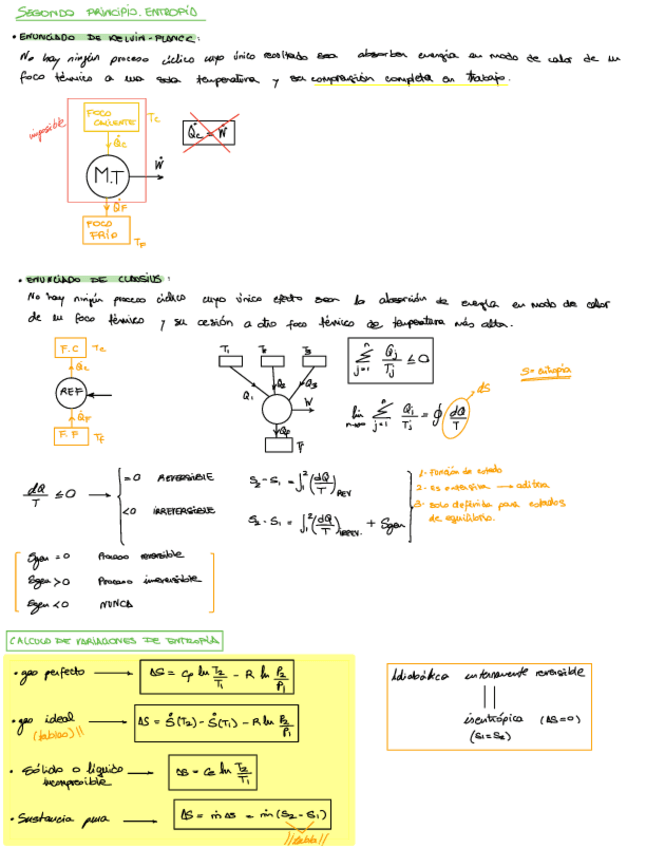 SEGUNDO PRINCIPIO. ENTROPÍA
• ENUNCIADO DE KELVIN-PLANCK:
No hay ningún proceso cíclico cuyo único resultado sea absorber energía en modo de calor de un
foco térmico a una sola temperatura y su conversión completa en trabajo.
imposible
FOCO CALIENTE
Tc
Q̇c
Q̇c = Ẇ
M.T
Ẇ
Q̇F
FOCO FRÍO
TF
• ENUNCIADO DE CLAUSIUS:
No hay ningún proceso cíclico cuyo único efecto sean la absorción de energía en modo de calor
de un foco térmico y su cesión a otro foco térmico de temperatura más alta.
F.C Tc
Q̇c
REF
Q̇F
F.F TF
T1 T2 T3
Q1 Q2 Q3
W
QF
TF
∑ j=1 n Qj/Tj ≤ 0
lim n→∞ ∑ j=1 n Qj/Tj = ∮ dQ/T
dS
S= entropía
dQ/T ≤ 0 → =0 REVERSIBLE
<0 IRREVERSIBLE
S2 - S1 = ∫₁² (dQ/T) REV
S2 - S1 = ∫₁² (dQ/T) IRREV. + Sgen
1- Función de estado
2- es extensiva → aditiva
3- solo definida para estados
de equilibrio.
Sgen = 0 Proceso reversible
Sgen > 0 Proceso irreversible
Sgen < 0 NUNCA
CALCULO DE VARIACIONES DE ENTROPÍA
• gas perfecto → ΔS = Cp ln T2/T1 - R ln P2/P1
• gas ideal → ΔS = S°(T2) - S°(T1) - R ln P2/P1
(tablas)
• Sólido o líquido → ΔS = Ce ln T2/T1
incompresible
• Sustancia pura → ΔS = ṁ Δs = ṁ (S2 - S1)
tabla
Adiabática internamente reversible
||
isentrópica (ΔS=0)
(S1=S2)